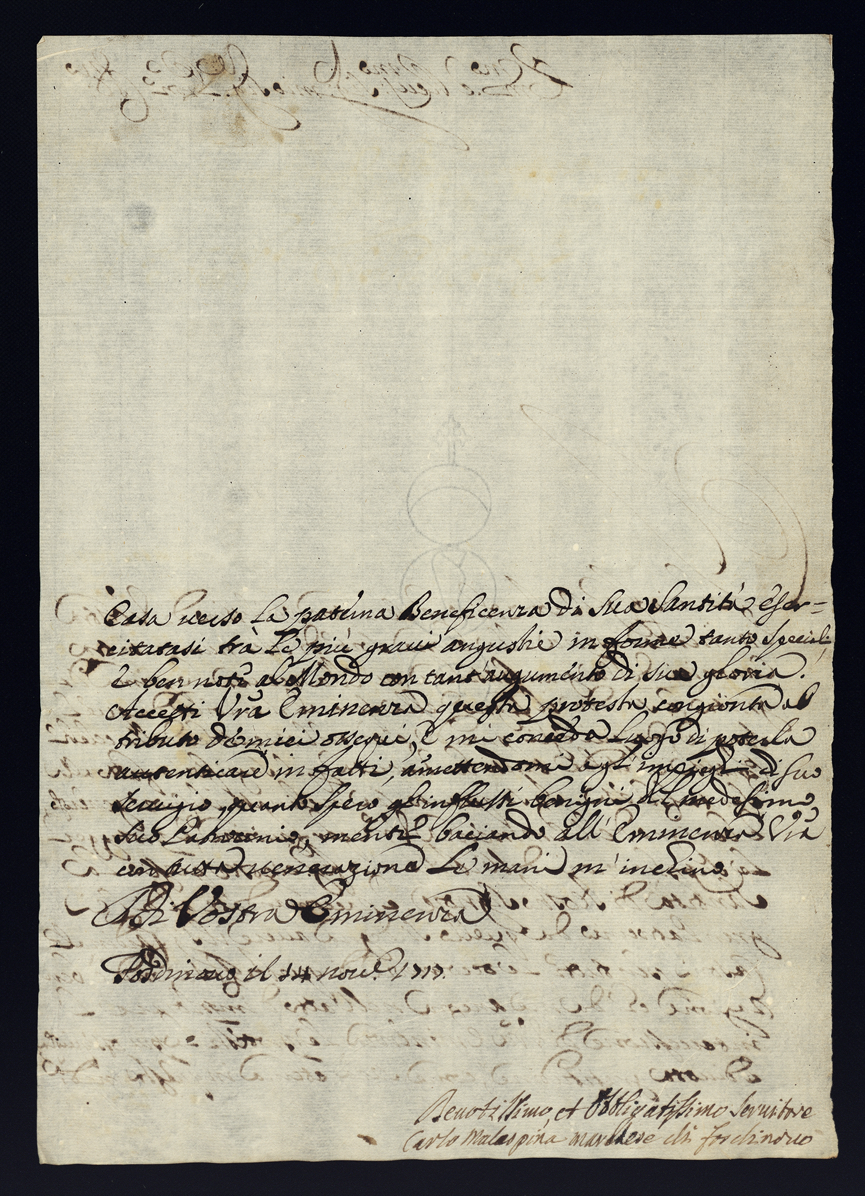 Casa verso la paterna Beneficenza di Sua Santità eser=
citatasi trà le più gravi angustie in forme tanto speciali,
è ben noti al Mondo con tant'augumento di sua gloria.
Accetti Vrã Eminenza questa protesta congionta al
tributo de miei ossequi, è mi conceda luogo di poterla
autenticare in fatti, amettendomi agl'impieghi di suo
servigio, quanto spero gl'influssi benigni del medesimo
suo Patrocinio, mentre baciando all'Eminenza Vrã
con tutta venerazione le mani m'inchino
Di Vostra Eminenza
Fosdinovo il 14 nov.e 1717.
Devotissimo, et Obbligatissimo Servitore
Carlo Malaspina marchese di fosdinovo